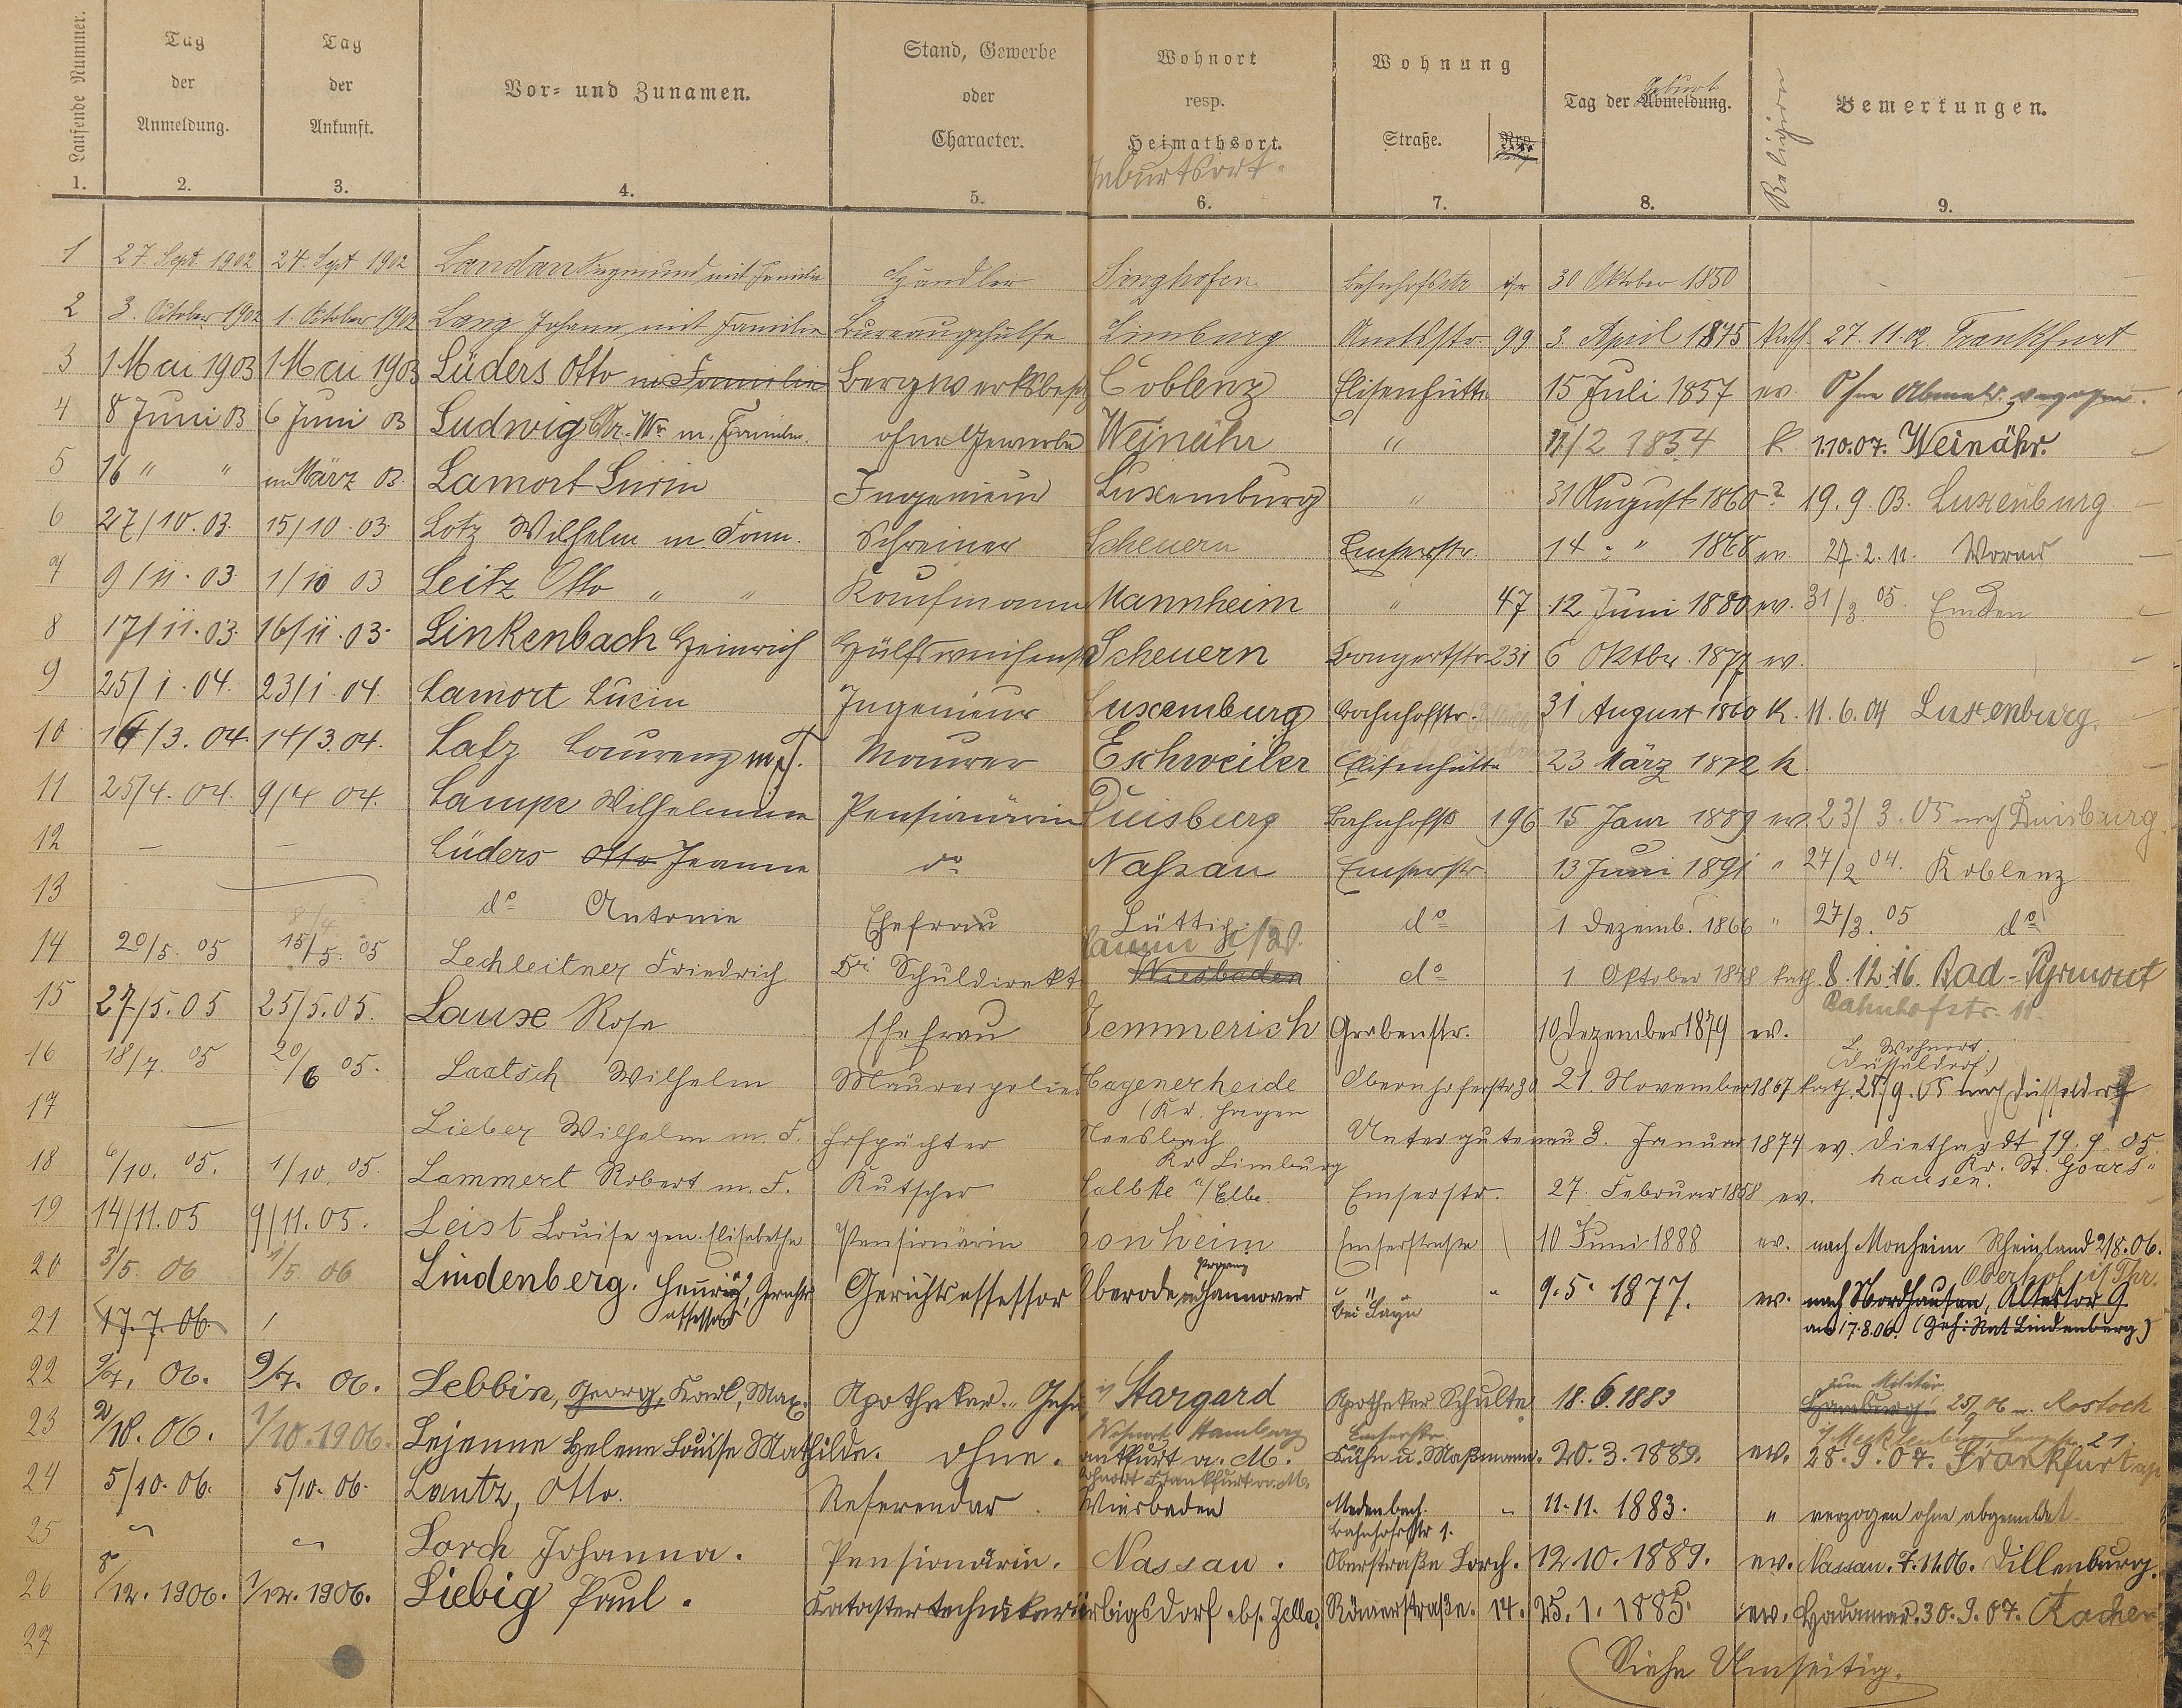 Laufende Nummer. Tag der Anmeldung. Tag der Ankunft. Vor- und Zunamen. Stand, Gewerbe oder Character. Wohnort resp. Heimathsort. Geburtsort. Wohnung Straße. Nro. Tag der Abmeldung. Geburt Religion Bemerkungen.
1. 2. 3. 4. 5. 6. 7. 8. 9.
1 27. Sept. 1902 24. Sept 1902 Landau Siegmund mit Familie Händler Singhofen Bahnhofstr 30 Oktober 1850
2 3. October 1902 1. October 1902 Lang Johann mit Familie Bureaugehülfe Limburg Amtsstr. 99 3. April 1875 kath. 27.11.02 Frankfurt
3 1 Mai 1903 1 Mai 1903 Lüders Otto m Familie Bergwerksbesitz Coblenz Elisenhütte 15 Juli 1857 ev. Ohne Abmeld. verzogen.
4 8 Juni 03 6 Juni 03 Ludwig Chr. Ww. m. Familie. ohne Gewerbe Weinähr " /2 1854 k. 1.10.07. Weinähr.
5 16 " " im März 03. Lamort Lucin Ingenieur Luxemburg " 31 August 1860 ? 19.9.03. Luxenburg
6 27/10.03. 15/10.03. Lotz Wilhelm m. Fam. Schreiner Scheuern Emserstr. 14 " " 1868 ev. 27.2.11. Worms
7 9/11.03. 1/10 03 Leitz Otto " " Kaufmann Mannheim " 47 12 Juni 1880 ev. 31/3. 05. Emden
8 17/11.03. 16/11.03. Linkenbach Heinrich Hülfsweichenst Scheuern Bongertstr 231 6 Oktbr. 1877 ev.
9 25/1.04. 23/1.04. Lamort Lucin Ingenieur Luxemburg Bahnhofstr. 31 August 1860 K. 11.6.04 Luxenburg.
10 16/3.04. 14/3.04. Latz Laurenz m.F. Maurer Eschweiler Elisenhütte 23 März 1872 k.
11 25/4.04. 9/4 04. Lampe Wilhelmine Pensionärin Duisburg Bahnhofst 196 15 Janr 1889 ev. 23/3.05 nach Duisburg.
12 — — Lüders Otto Jeanne do Nassau Emserstr 13 Juni 1891 " 27/2 04. Koblenz
13 do Antonie Ehefrau Lüttich do 1 Dezemb. 1866 " 27/3. 05 do
14 20/5. 05 15/5. 05 Lechleitner Friedrich Dr Schuldirekt Wiesbaden do 1 Oktober 1848 kath. 8.12.16. Bad-Pyrmont
Bahnhofstr. 11
15 27/5.05 25/5.05. Lause Rosa Ehefrau Kemmerich Grabenstr. 10 Dezember 1879 ev.
L. Wohnort
(Düsseldorf.)
16 18/7. 05 20/6 05. Laatsch Wilhelm Maurerpolier Hagenerheide Obernhoferstr 30 21. November 1867 kath. 28/9.05 nach Düsseldorf
(Kr. Hagen
17 Lieber Wilhelm m. F. Hofpächter Neesbach Untergutenau 3. Januar 1874 ev. Diethardt 19.9.05.
Kr Limburg Kr. St. Goars-
hausen.
18 6/10. 05. 1/10. 05. Lammert Robert m. F. Kutscher Salbke a/Elbe. Emserstr. 27. Februar 1858 ev.
19 14/11.05 9/11.05. Leist Louise gen. Elisabethe Pensionärin Monheim Emserstrasse 10 Juni 1888 ev. nach Monheim Rheinland 2/8.06.
Oberhof i/ Thr.
20 3/5. 06 1/5 06 Lindenberg. Heinrich, Gerichts Gerichtsassessor Oberode Hannover " " 9.5. 1877. ev. nach Nordhausen, Altestor 9.
assessor bei Bayn
21 17.7.06. am 17.8.06. (Geh: Rat Lindenberg.)
zum Militär
22 9/7. 06. 9/7. 06. Lebbin, Georg, Karl, Max. Apotheker. Geh. Stargard Apotheker Schulte 18.6.1883 Hamburg 25/9 06 n. Rostock
Wohnort Hamburg Emserstr. i/Mecklenburg 21.
23 2/10.06. 1/10.1906. Lejeune Helene Louise Mathilde. ohne. Frankfurt a. M. Kühn u. Maßmann. 20.3.1889. ev. 28.9.07. Frankfurt
Wohnort Frankfurt a. M.
24 5/10.06. 5/10.06. Lantz, Otto. Referendar. Wiesbaden Medenbach. 11.11.1883. " verzogen ohne abgemeldet
Bahnhofstr 1.
25 Lorch Johanna. Pensionärin. Nassau. Oberstraße Lorch. 12.10.1889. ev. Nassau. 7.11.06. Dillenburg.
26 8/12.1906. 1/12.1906. Liebig Paul. Katastertechniker Erbigsdorf Römerstraße. 14. 25.1.1885. ev. Hadamar. 30.9.07. Aachen
27
Siehe Umseitig.